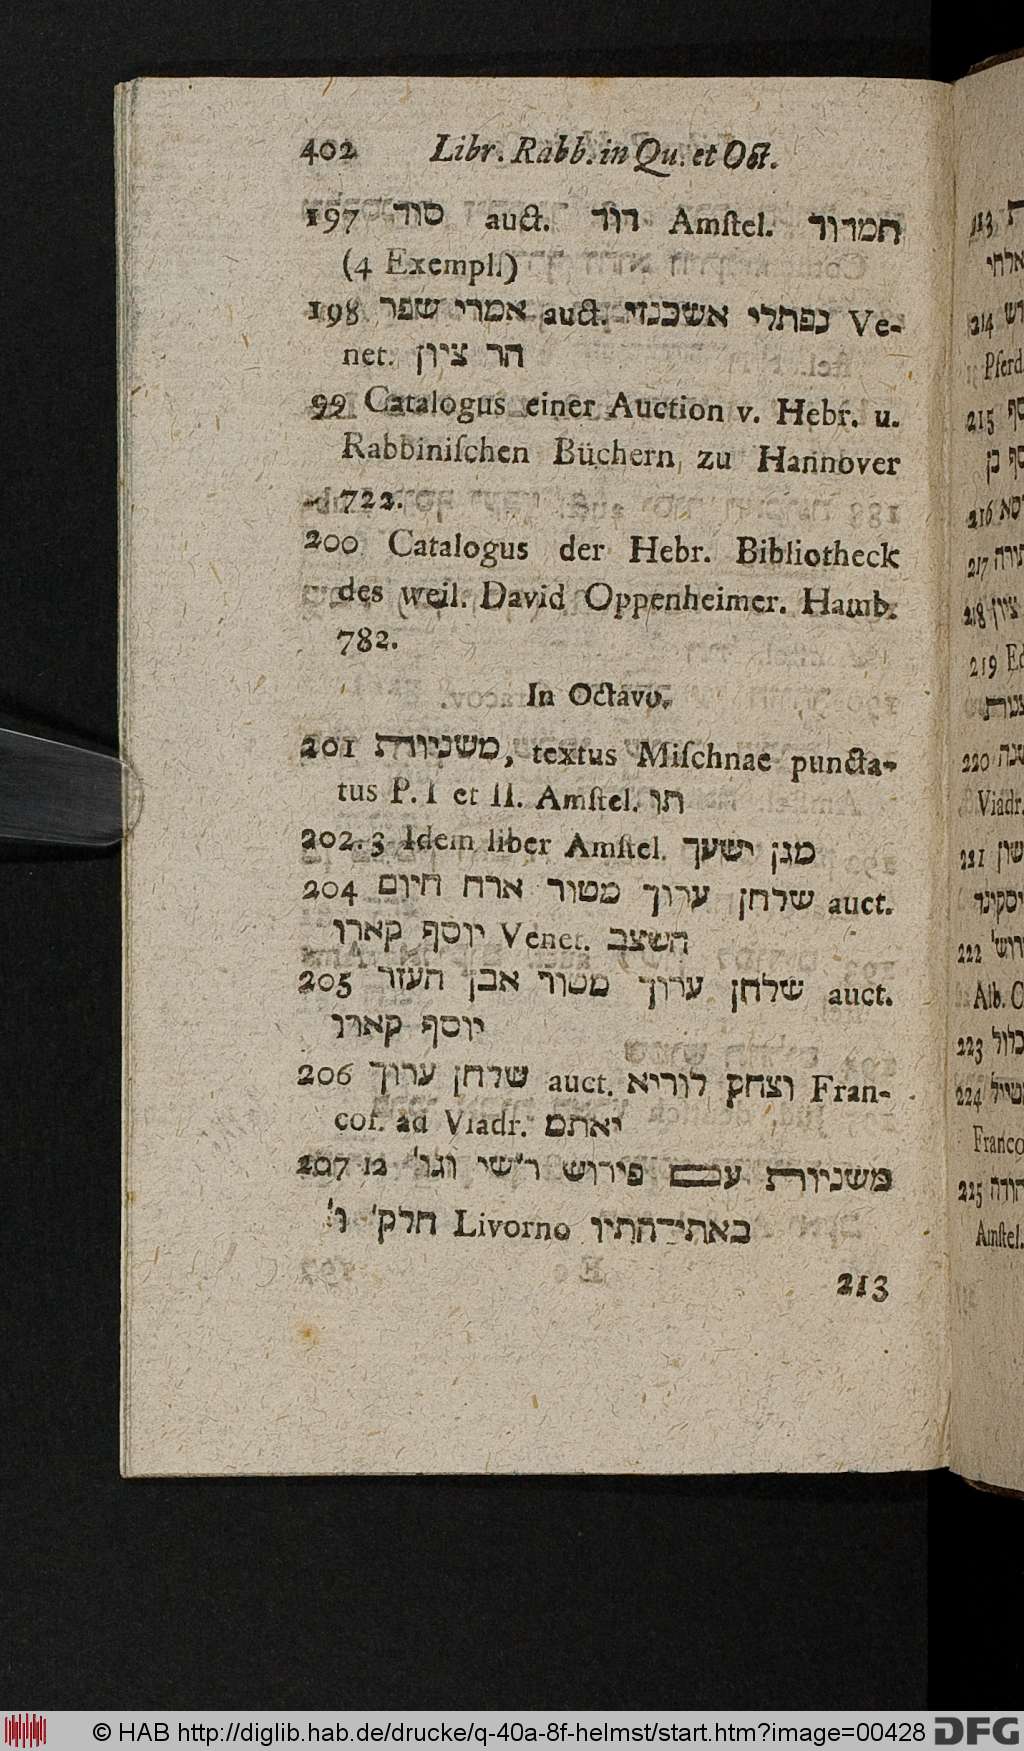 402 Libr. Rabb. in Qu. et Oct.
197 סוד auct. דוד Amſtel. חמדוד
(4 Exempl.)
198 אמרי שפר auct. נפתלי אשכנזי Ve-
net. הר ציון
99 Catalogus einer Auction v. Hebr. u.
Rabbiniſchen Büchern zu Hannover
722.
200 Catalogus der Hebr. Bibliotheck
des weil. David Oppenheimer. Hamb.
782.
In Octavo.
201 משניורת, textus Miſchnae puncta-
tus P. I et II. Amſtel. תו
202. 3 Idem liber Amſtel. מגן ישעך
204 שלחן ערוך מטור ארח חיום auct.
יוסף קארו Venet. השצב
205 שלחן ערוך מטור אבן העזר auct.
יוסף קארו
206 שלחן ערוך auct. יצחק לוריא Fran-
cof. ad Viadr. יאתם
207 12 משניורת עם פירוש ר'שי וגו'
חלק' ו' Livorno באתי־התיו
213
© HAB http://diglib.hab.de/drucke/q-40a-8f-helmst/start.htm?image=00428 DFG